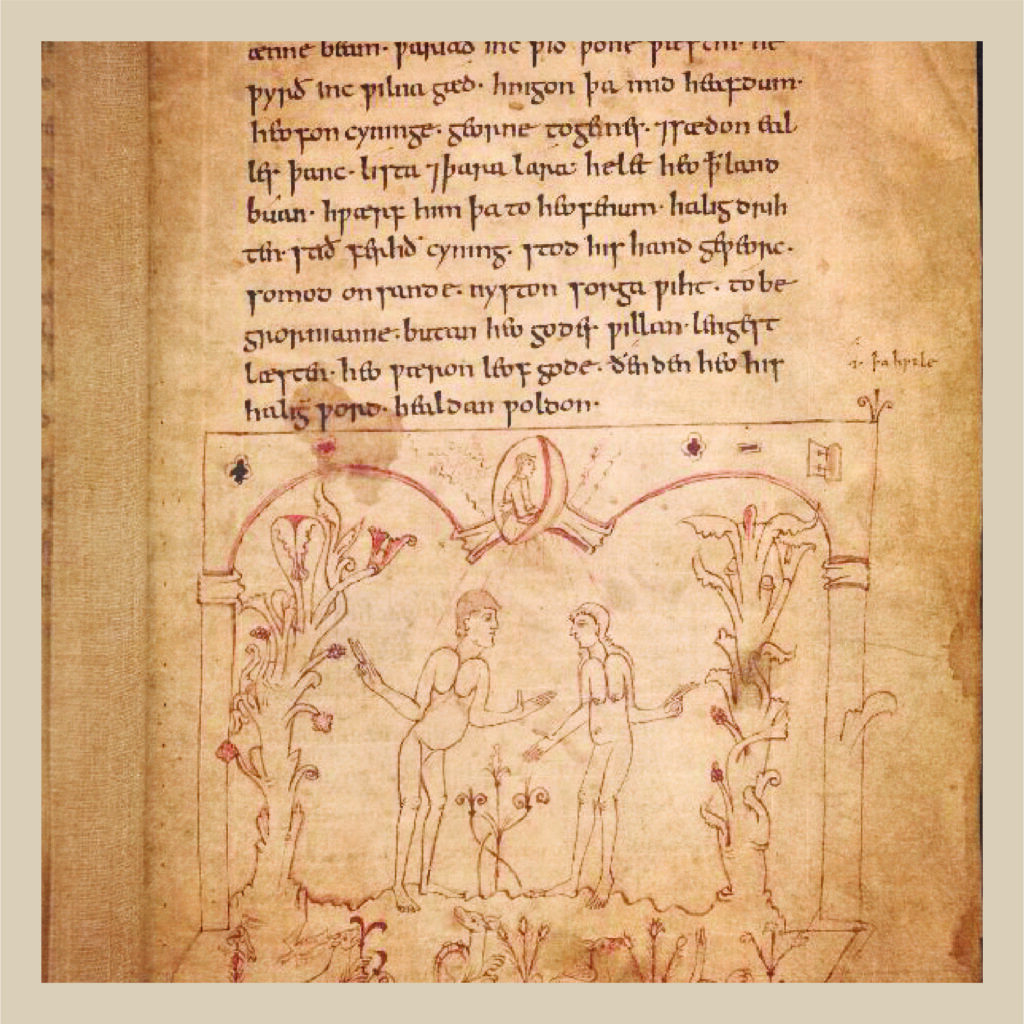 ænne beam· warnað inc wið þone wæstm· ne
wyrð inc wilna gæd· hnigon þa mid heafdum·
heofon cyninge· georne togenes· ⁊ sædon eal
les þanc· lista ⁊ þara lara· he let heo ꝥ land
buan· hwærf him þa to heofenum· halig drih
ten· stið ferhð cyning· stod his hand geweorc·
somod on sande· nyston sorga wiht· to be
grornianne· butan heo godes willan· lengest
læsten· heo wæron leof gode· ðenden heo his
halig word· healdan woldon·
.i. þa hwile